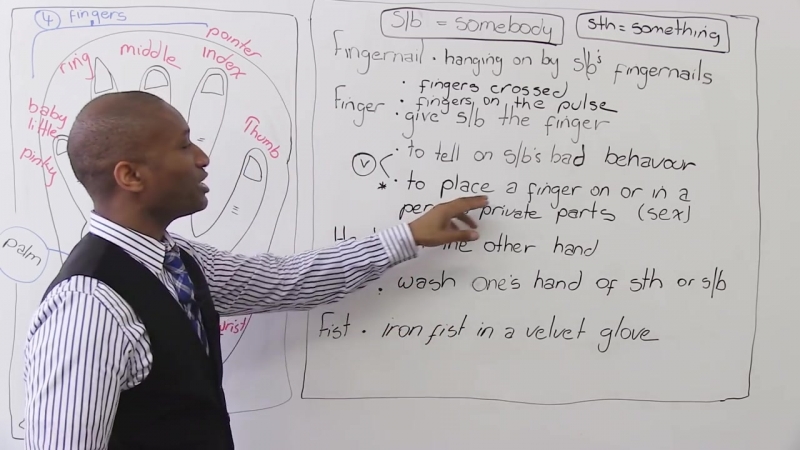 ④ fingers
pointer
ring
middle
index
baby
little
pinky
Thumb
palm
wrist
s/b = somebody
sth = something
Fingernail · hanging on by s/b's fingernails
· fingers crossed
Finger · fingers on the pulse
· give s/b the finger
(v) · to tell on s/b's bad behavour
* · to place a finger on or in a
private parts (sex)
other hand
· wash one's hand of sth or s/b
Fist · iron fist in a velvet glove